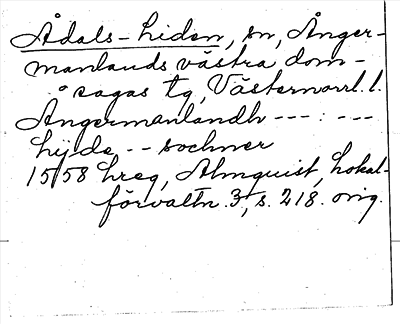 Ådals-Liden, sn, Ånger-
manlands västra dom-
sagas tg, Västernorrl. l.
Ångermanlandh --- : ---
Lijde -- sochner
1558 hreg, Almquist, Lokal-
förvaltn. 3, s. 218. orig.